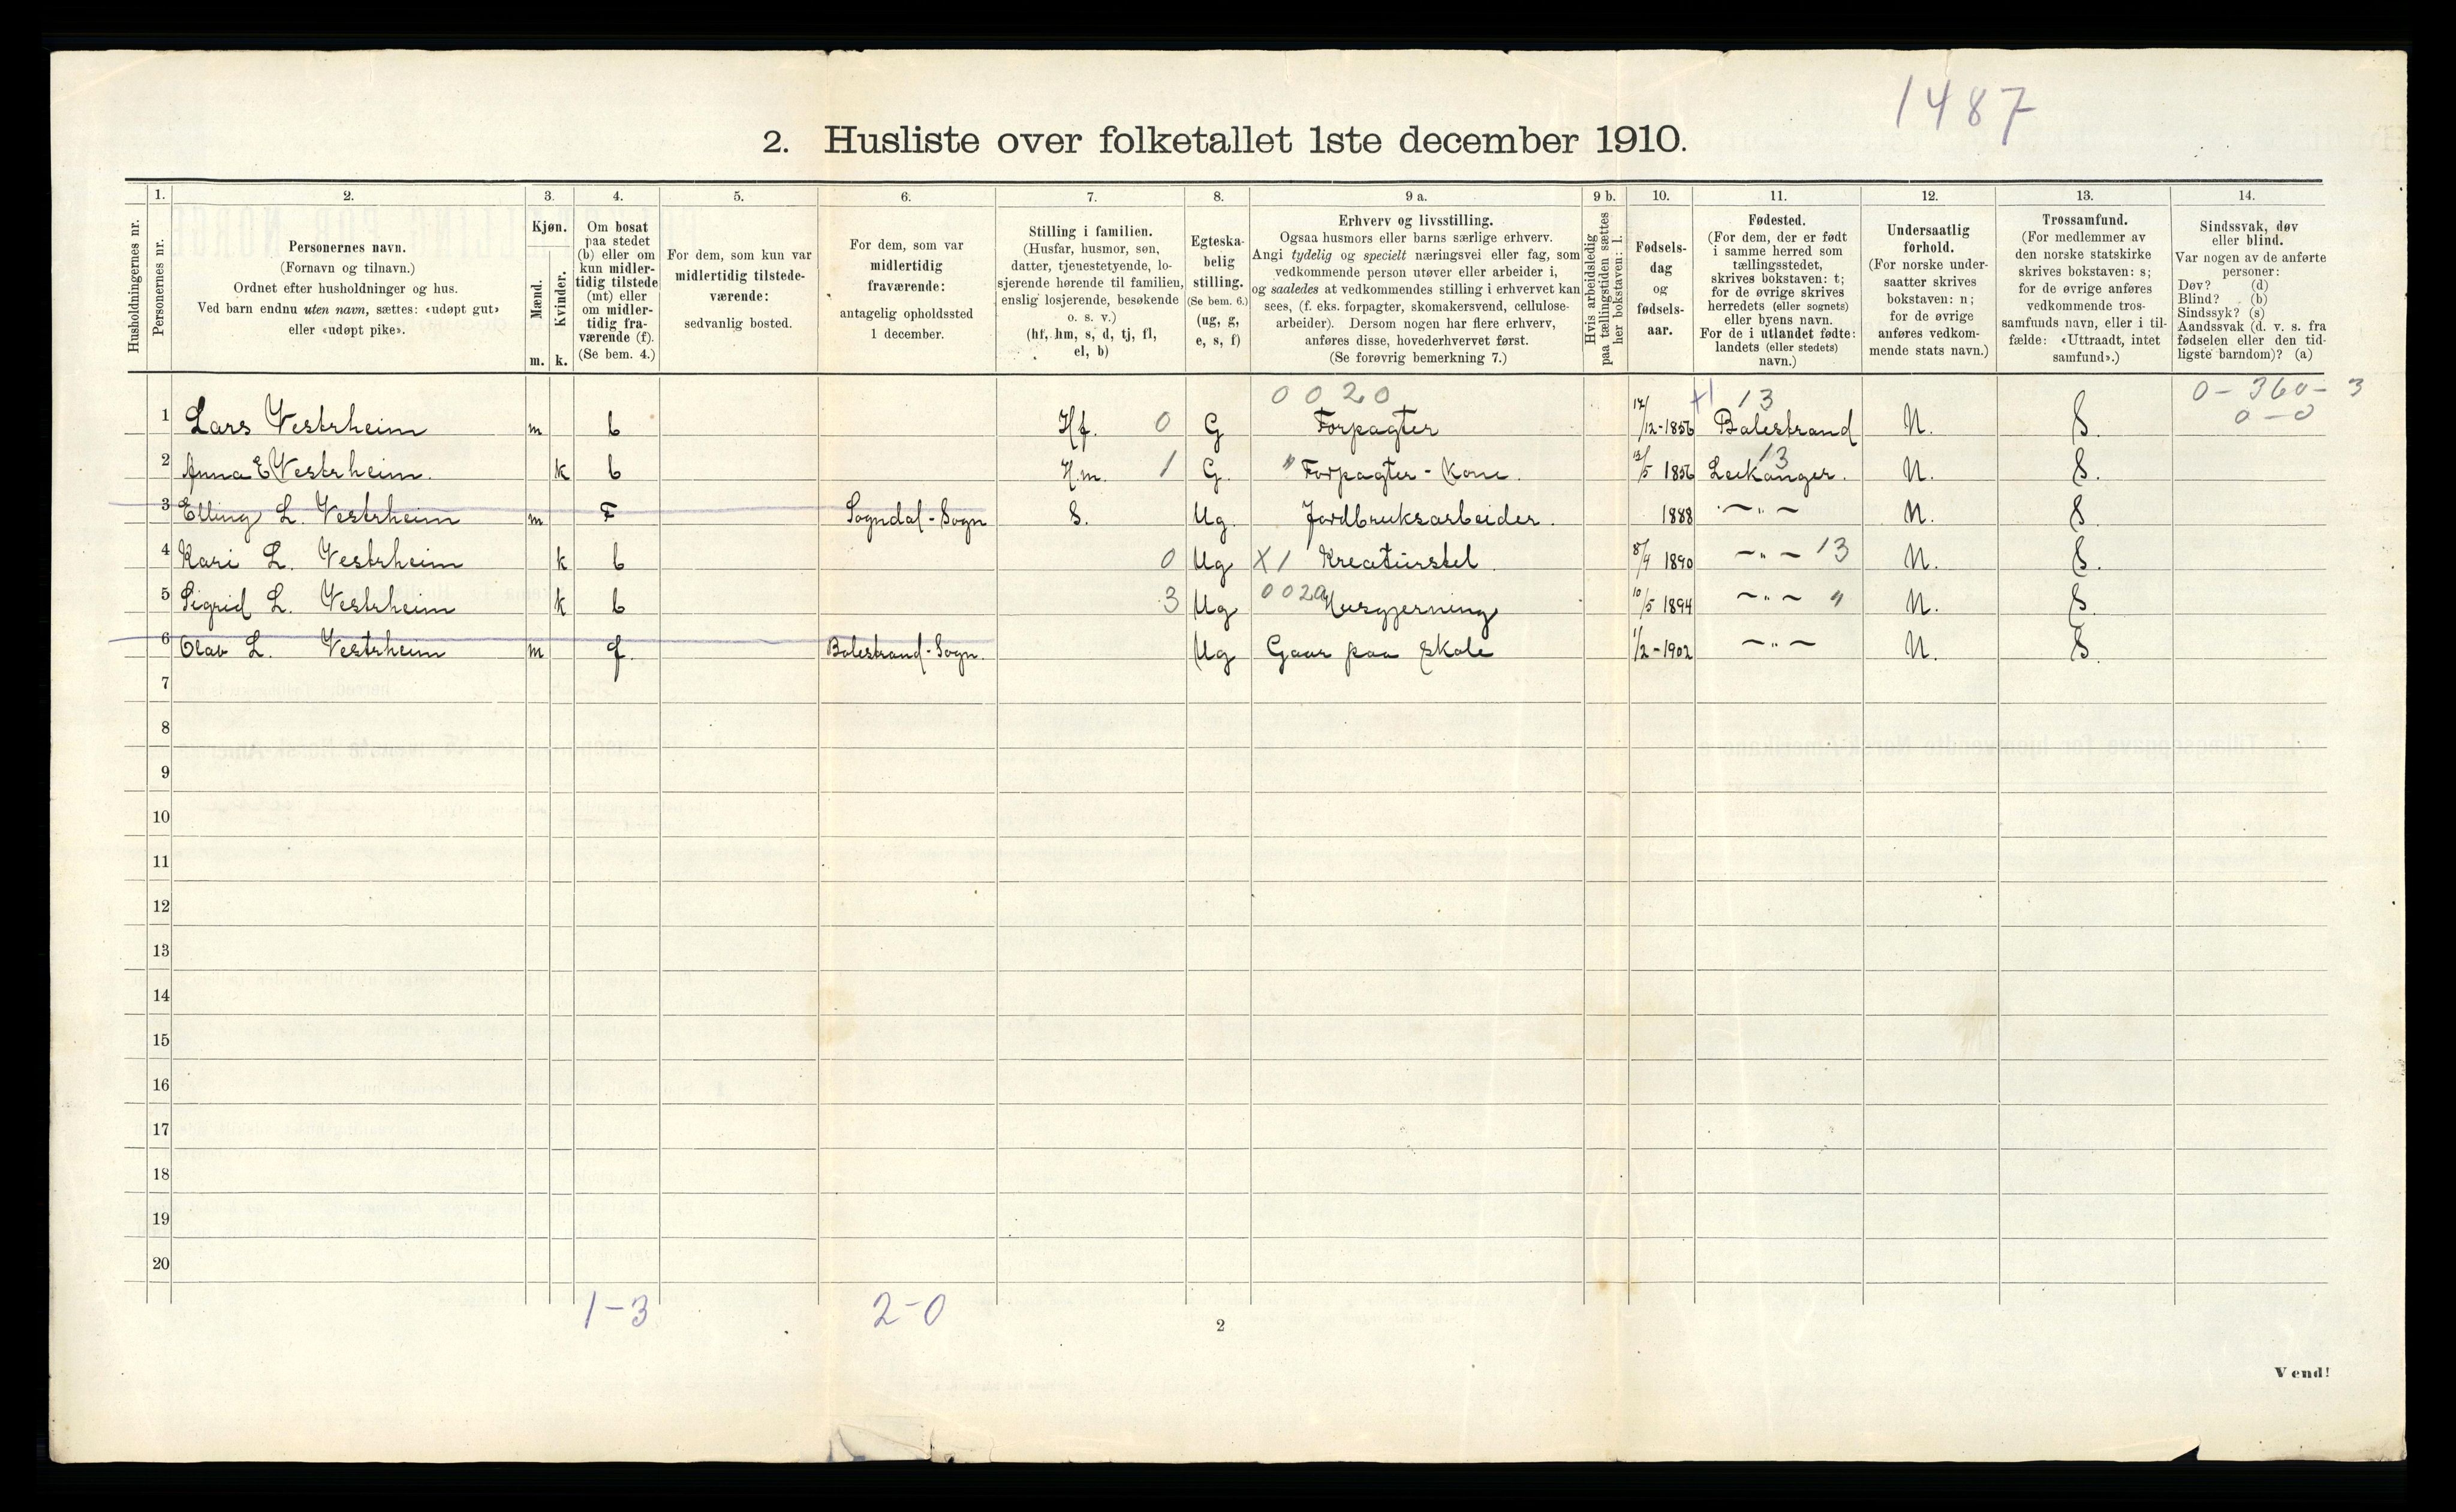 1487
2. Husliste over folketallet 1ste december 1910.
Husholdningernes nr.
1.
Personernes nr.
2.
Personernes navn.
(Fornavn og tilnavn.)
Ordnet efter husholdninger og hus.
Ved barn endnu uten navn, sættes: «udøpt gut»
eller «udøpt pike».
3.
Kjøn.
Mænd.
m.
Kvinder.
k.
4.
Om bosat
paa stedet
(b) eller om
kun midler-
tidig tilstede
(mt) eller
om midler-
tidig fra-
værende (f).
(Se bem. 4.)
5.
For dem, som kun var
midlertidig tilstede-
værende:
sedvanlig bosted.
6.
For dem, som var
midlertidig
fraværende:
antagelig opholdssted
1 december.
7.
Stilling i familien.
(Husfar, husmor, søn,
datter, tjenestetyende, lo-
sjerende hørende til familien,
enslig losjerende, besøkende
o. s. v.)
(hf, hm, s, d, tj, fl,
el, b)
8.
Egteska-
belig
stilling.
(Se bem. 6.)
(ug, g,
e, s, f)
9 a.
Erhverv og livsstilling.
Ogsaa husmors eller barns særlige erhverv.
Angi tydelig og specielt næringsvei eller fag, som
vedkommende person utøver eller arbeider i,
og saaledes at vedkommendes stilling i erhvervet kan
sees, (f. eks. forpagter, skomakersvend, cellulose-
arbeider). Dersom nogen har flere erhverv,
anføres disse, hovederhvervet først.
(Se forøvrig bemerkning 7.)
9 b.
Hvis arbeidsledig
paa tællingstiden sættes
her bokstaven: l.
10.
Fødsels-
dag
og
fødsels-
aar.
11.
Fødested.
(For dem, der er født
i samme herred som
tællingsstedet,
skrives bokstaven: t;
for de øvrige skrives
herredets (eller sognets)
eller byens navn.
For de i utlandet fødte:
landets (eller stedets)
navn.)
12.
Undersaatlig
forhold.
(For norske under-
saatter skrives
bokstaven: n;
for de øvrige
anføres vedkom-
mende stats navn.)
13.
Trossamfund.
(For medlemmer av
den norske statskirke
skrives bokstaven: s;
for de øvrige anføres
vedkommende tros-
samfunds navn, eller i til-
fælde: «Uttraadt, intet
samfund».)
14.
Sindssvak, døv
eller blind.
Var nogen av de anførte
personer:
Døv? (d)
Blind? (b)
Sindssyk? (s)
Aandssvak (d. v. s. fra
fødselen eller den tid-
ligste barndom)? (a)
0 0 2 0 x1 13 0 - 360 - 3
0 - 0
1 Lars Vestrheim m b Hf. 0 G Forpagter 17/12-1856 Balestrand N. S.
13
2 Anna E Vestrheim. k b H.m. 1 G. " Forpagter - Kone. 12/5 1856 Leikanger. N. S.
3 Elling L. Vestrheim m F Sogndal - Sogn S. Ug. Jordbruksarbeider. 1888 - " - N. S.
4 Kari L. Vestrheim k b 0 Ug X1 Kreaturstel 8/4 1890 - " - 13 N. S.
5 Sigrid L. Vestrheim k b 3 Ug 0020 Husgjerning 10/5 1894 - " - " N. S.
6 Olav L. Vestrheim m f. Balestrand - Sogn. Ug Gaar paa skole 1/2-1902 - " - N. S.
7
8
9
10
11
12
13
14
15
16
17
18
19
20
1-3 2-0
2
Vend!